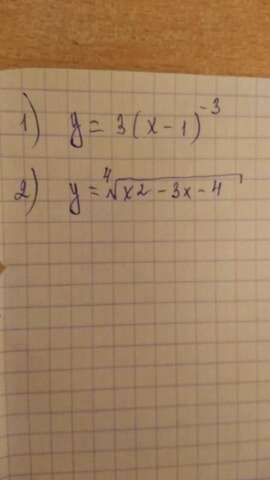 1) y = 3(x-1)^-3
2) y = ⁴√x2 - 3x - 4